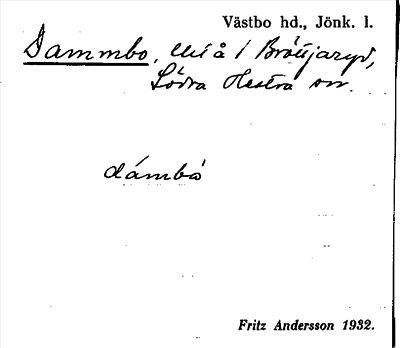 Västbo hd., Jönk. l.
Dammbo, å / Bröttjaryd,
Södra Hestra sn.
dámbó
Fritz Andersson 1932.